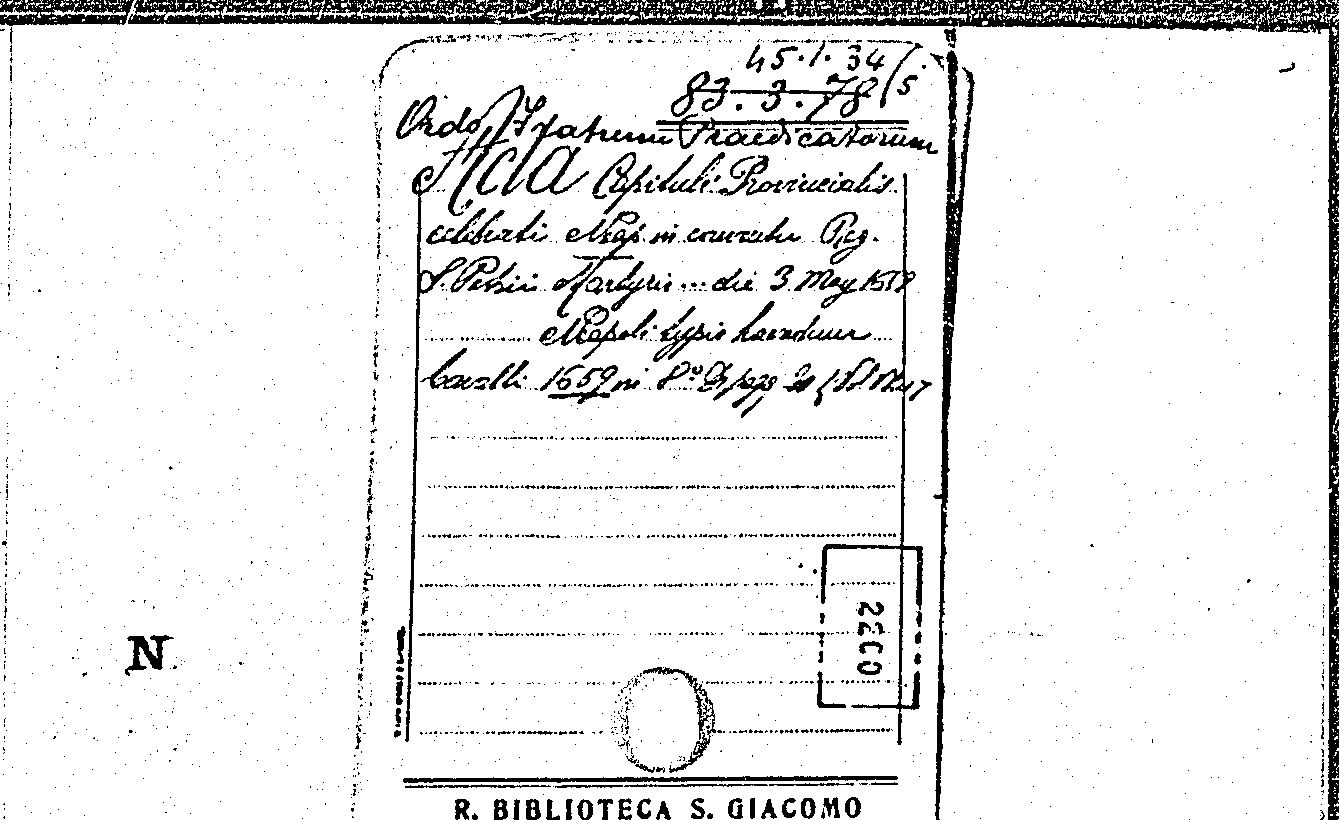 45.1.34
83.3.78 (5.
Ordo Fratrum Praedicatorum
Acta Capituli Provincialis
celebrati Neap. in conventu Reg.
S. Petri Martyris ... die 3 May 1659
Neapoli typis haeredum
Cavalli 1659 in 8°
N
2260
R. BIBLIOTECA S. GIACOMO